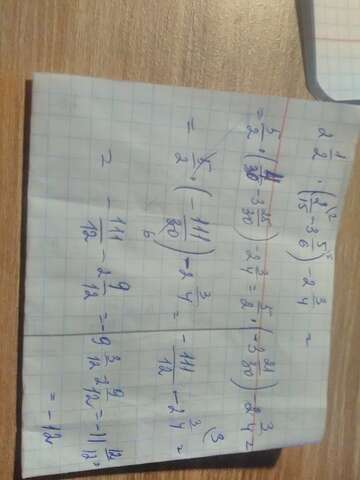 2 1/2 · (2/15 - 3 5/6) - 2 3/4 =
= 5/2 · (4/30 - 3 25/30) - 2 3/4 = 5/2 · (-3 21/30) - 2 3/4 =
= 5/2 · (-111/30) - 2 3/4 = -111/12 - 2 3/4 =
= -111/12 - 2 9/12 = -9 3/12 - 2 9/12 = -11 12/12 =
= -12